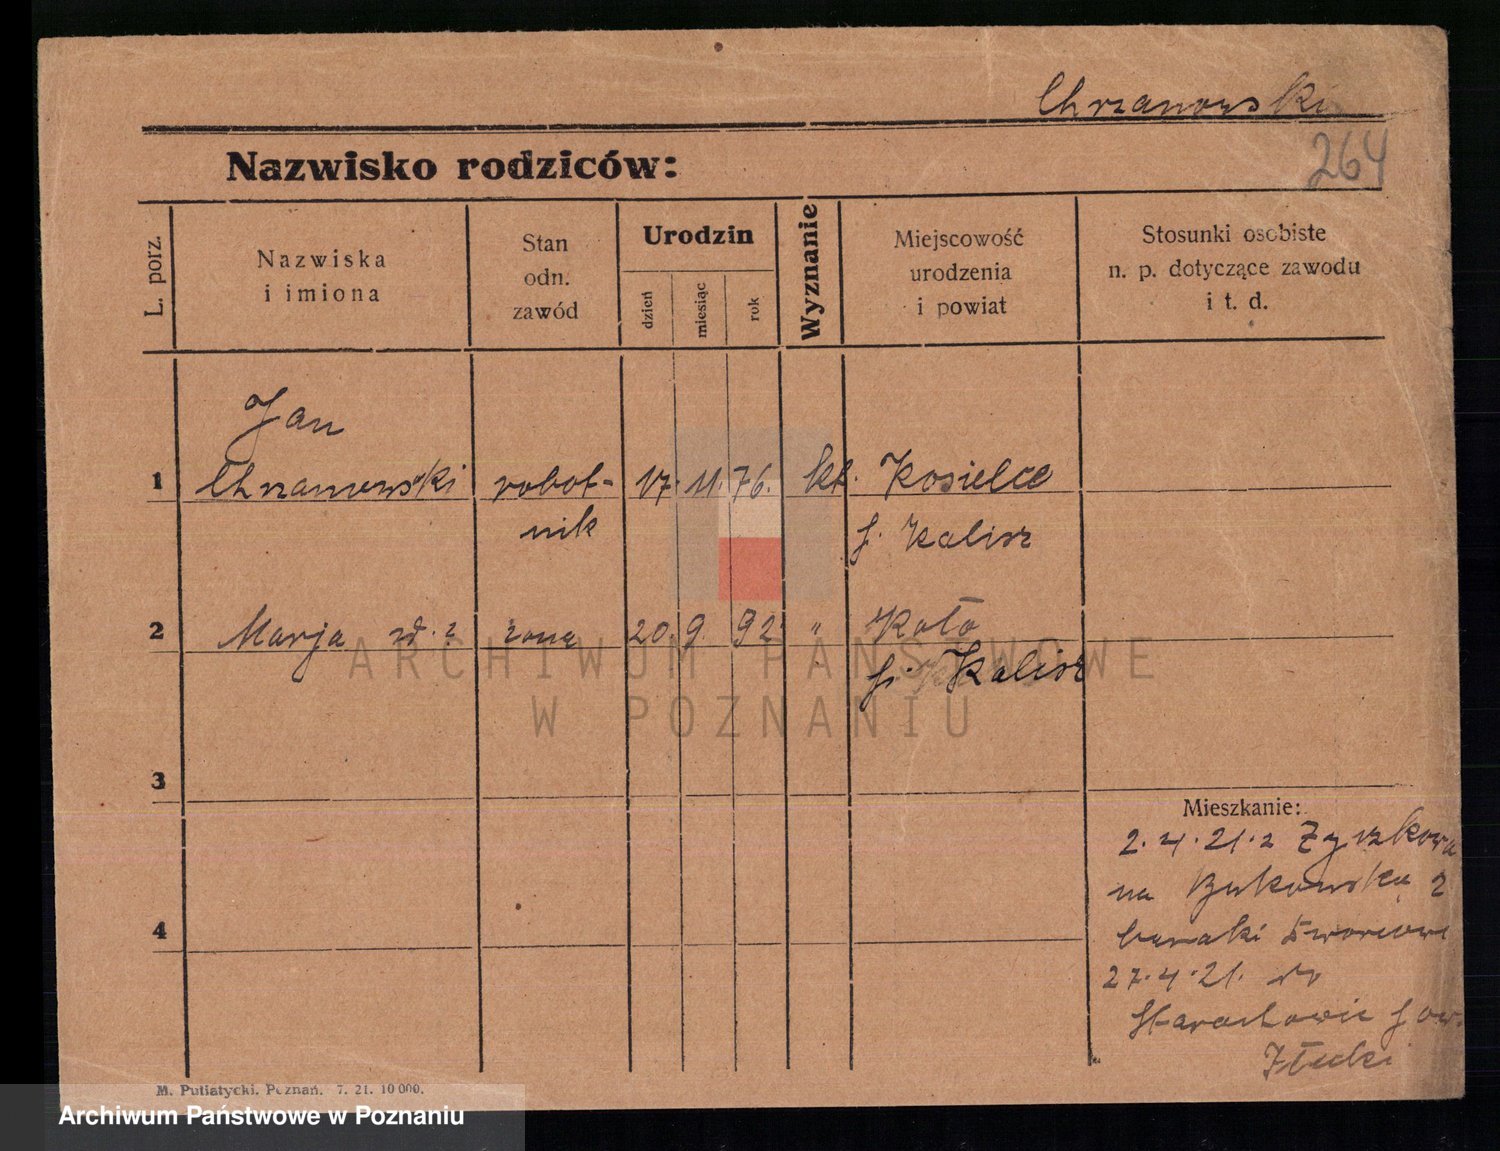 Chrzanowski
264
Nazwisko rodziców:
L. porz.
Nazwiska
i imiona
Stan
odn.
zawód
Urodzin
dzień
miesiąc
rok
Wyznanie
Miejscowość
urodzenia
i powiat
Stosunki osobiste
n. p. dotyczące zawodu
i t. d.
Jan
1 Chrzanowski robot- 17. 11. 76. kt. Kosielce
nik p. Kalisz
2 Marja żona 20. 9. 92. " Koło
p. Kalisz
3
Mieszkanie:
2.4.21. z Zyrzkowa
na Bukowską 2
4 baraki Dworcowe
27.4.21. do
Starachowic pow.
Iłucki
M. Putiatycki. Poznań. 7. 21. 10 000.
ARCHIWUM PAŃSTWOWE
W POZNANIU
Archiwum Państwowe w Poznaniu